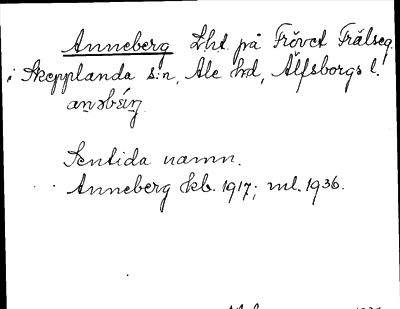 Anneberg Lht. på Frövet Frälseg.
i Skepplanda s:n, Ale hd, Älfsborgs l.
Sentida namn.
Anneberg kb. 1917; ml. 1936.